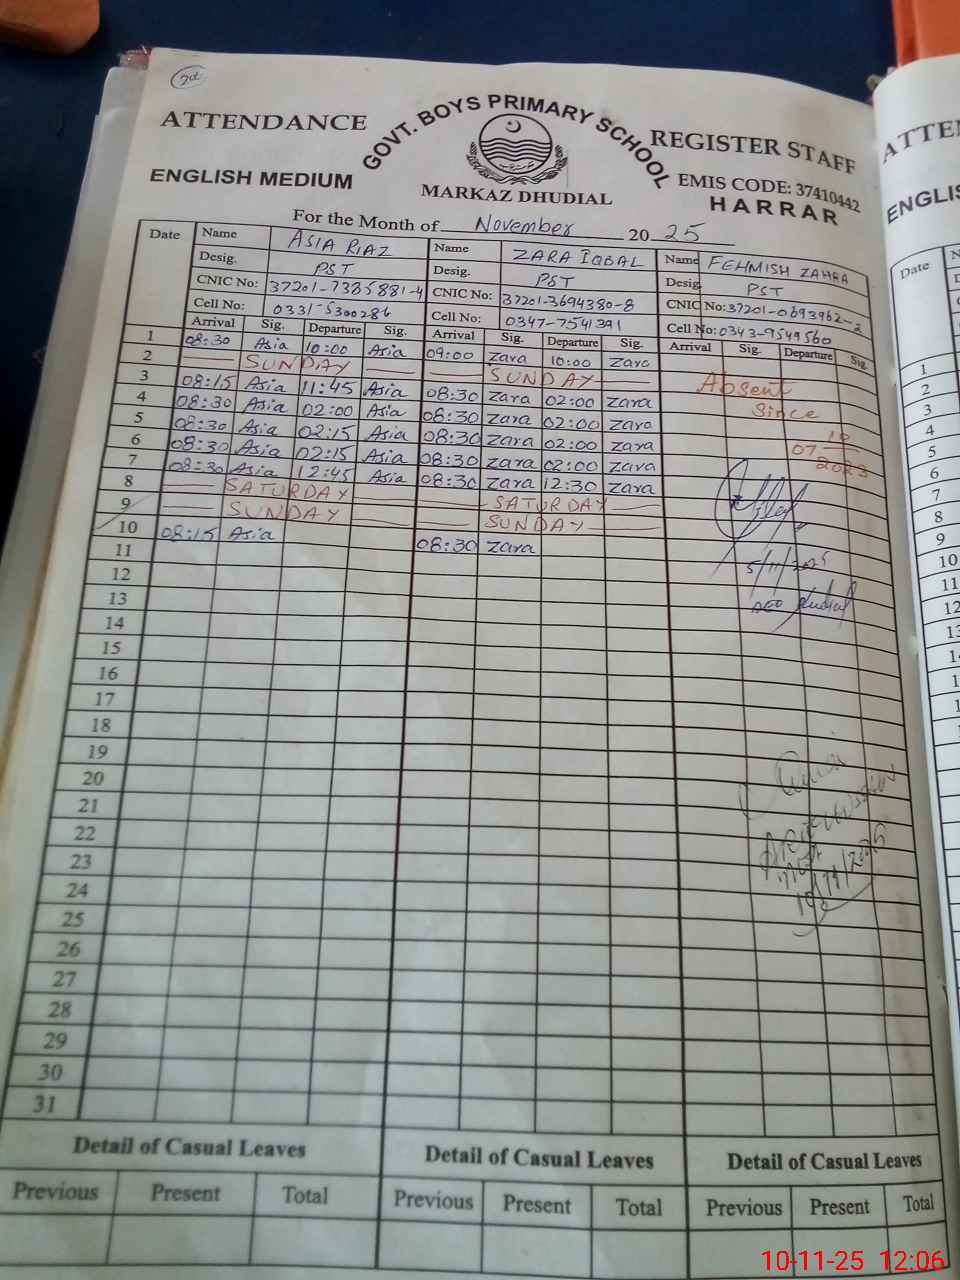 2d
GOVT. BOYS PRIMARY SCHOOL
ATTENDANCE REGISTER STAFF
ENGLISH MEDIUM MARKAZ DHUDIAL EMIS CODE: 37410442
HARRAR
For the Month of November 20 25
Date Name ASIA RIAZ Name ZARA IQBAL Name FEHMISH ZAHRA
Desig. PST Desig. PST Desig. PST
CNIC No: 37201-7385881-4 CNIC No: 37201-3694380-8 CNIC No: 37201-0693962-2
Cell No: 0331-5300286 Cell No: 0347-7541391 Cell No: 0343-9549560
Arrival Sig. Departure Sig. Arrival Sig. Departure Sig. Arrival Sig. Departure Sig.
1 08:30 Asia 10:00 Asia 09:00 Zara 10:00 Zara
2 SUNDAY SUNDAY Absent
3 08:15 Asia 11:45 Asia 08:30 Zara 02:00 Zara Since
4 08:30 Asia 02:00 Asia 08:30 Zara 02:00 Zara
5 08:30 Asia 02:15 Asia 08:30 Zara 02:00 Zara 07-10-2023
6 08:30 Asia 02:15 Asia 08:30 Zara 02:00 Zara
7 08:30 Asia 12:45 Asia 08:30 Zara 12:30 Zara
8 SATURDAY SATURDAY
9 SUNDAY SUNDAY
10 08:15 Asia 08:30 Zara
11 5/11/2025
12 AEO Dhudial
13
14
15
16
17
18
19
20
21
22
23
24 10/11/2025
25
26
27
28
29
30
31
Detail of Casual Leaves Detail of Casual Leaves Detail of Casual Leaves
Previous Present Total Previous Present Total Previous Present Total
ATTEN
ENGLIS
Date
1
2
3
4
5
6
7
8
9
10
11
12
13
14
10-11-25 12:06